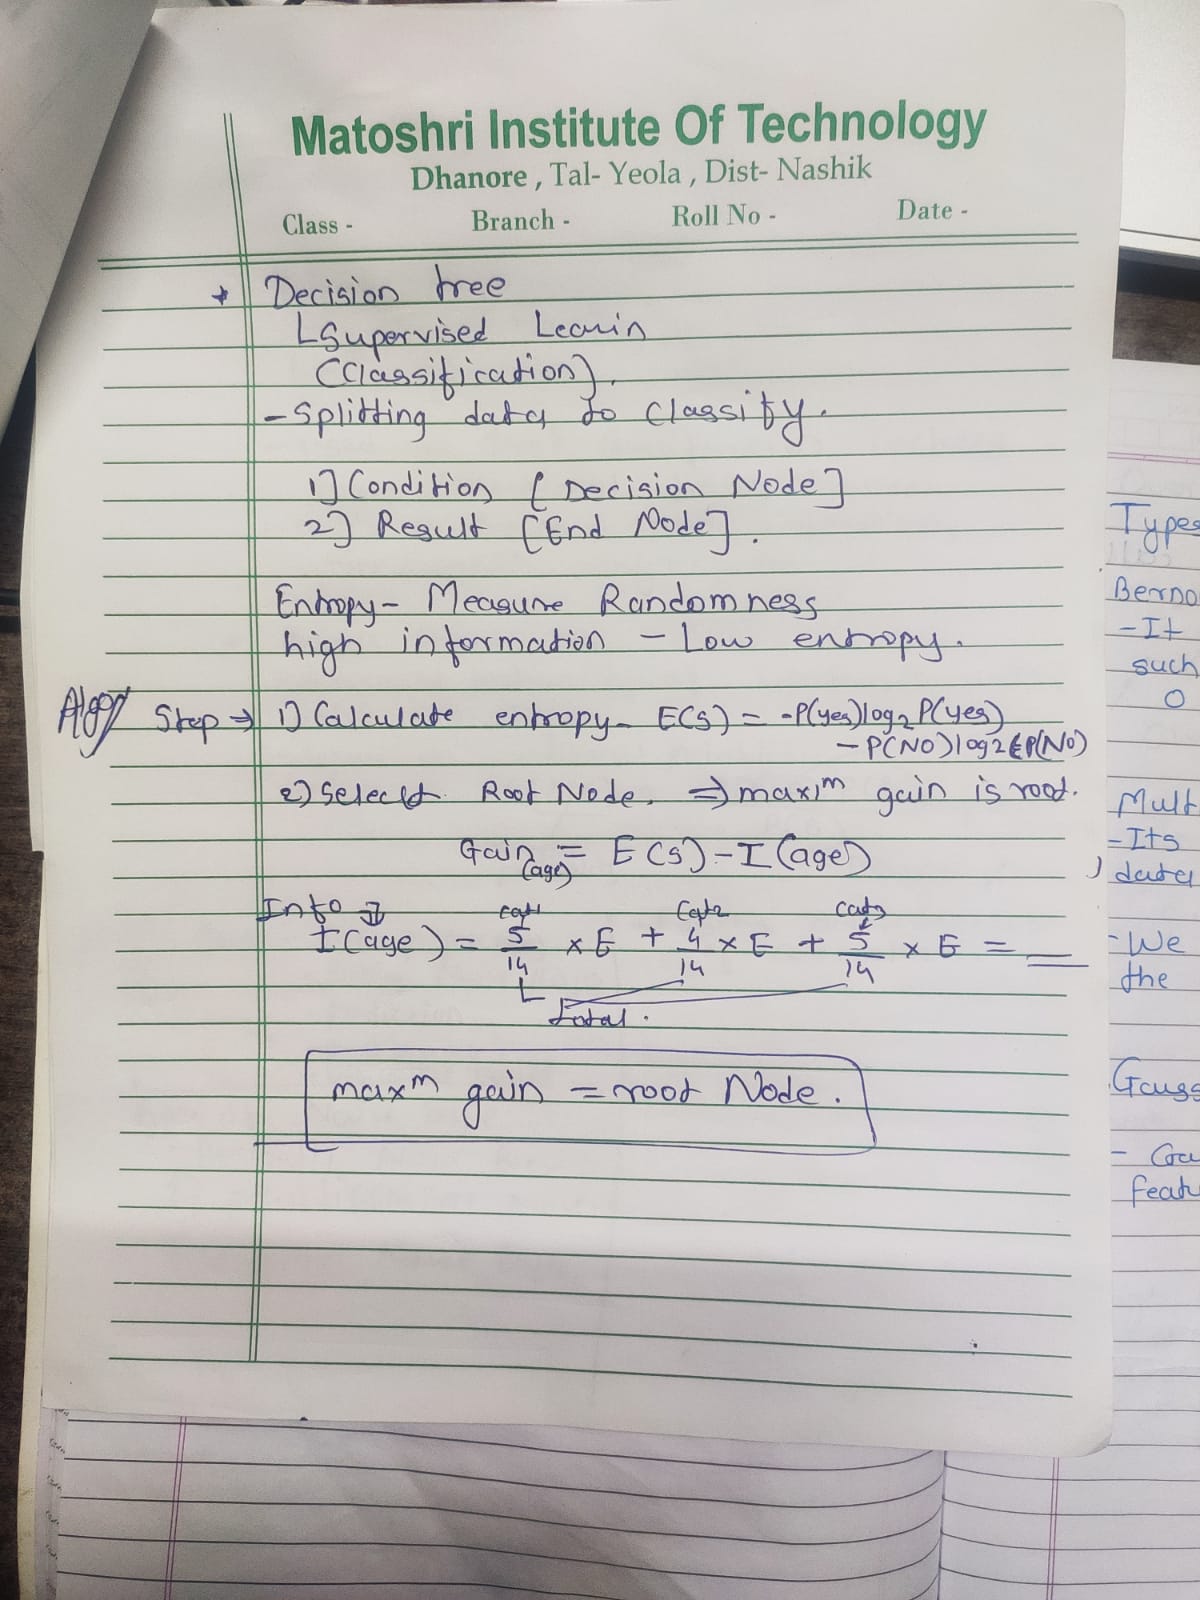 Matoshri Institute Of Technology
Dhanore , Tal- Yeola , Dist- Nashik
Class - Branch - Roll No - Date -
* Decision tree
Supervised Learnin
(Classification).
- Splitting data to classify.
1] Condition [Decision Node]
2] Result [End Node].
Entropy - Measure Randomness
high information - Low entropy.
Algo Step ⇒ 1) Calculate entropy - E(S) = -P(yes)log2 P(yes)
- P(NO)log2 P(NO)
2) Select Root Node. ⇒ maximm gain is root.
Gain(age) = E(S) - I(age)
Info
cat1 Cat2 Cat3
I(age) = 5/14 × E + 4/14 × E + 5/14 × E = __
total.
maxm gain = root Node.
Types
Berno
- It
such
0
Mult
- Its
data
- We
the
Gauss
- Ga
featu